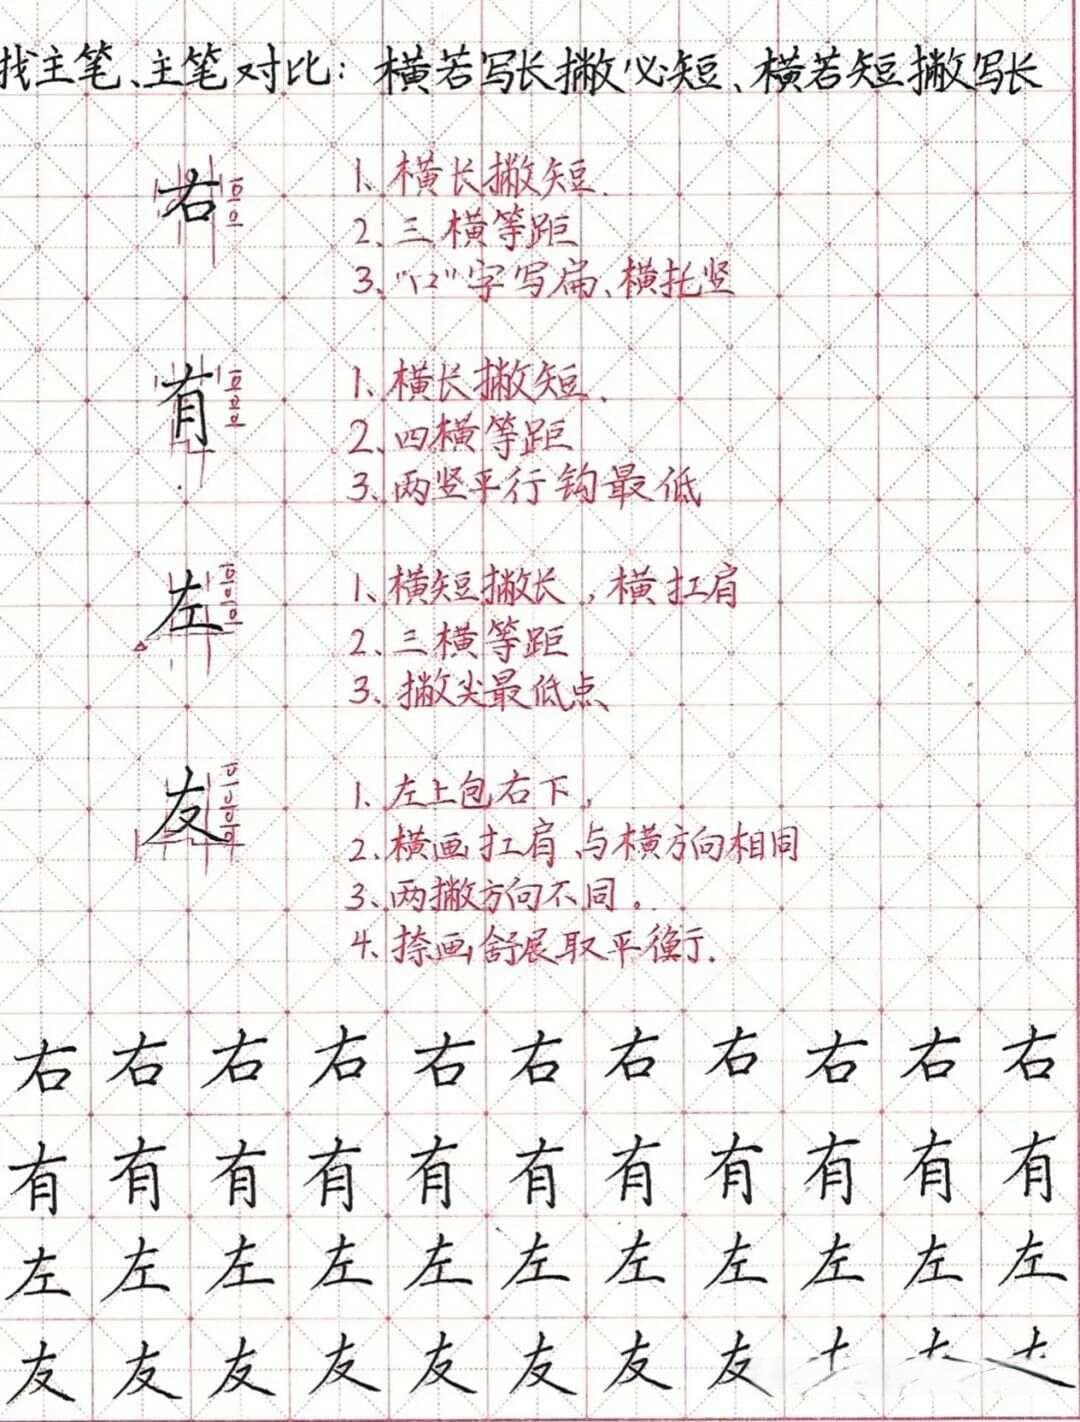 找主笔、主笔对比：横若写长撇必短、横若短撇写长
右
1、横长撇短.
2、三横等距
3、"口"字写扁、横托竖
有
1、横长撇短.
2、四横等距
3、两竖平行钩最低
左
1、横短撇长，横扛肩
2、三横等距
3、撇尖最低点、
友
1、左上包右下，
2、横画扛肩、与横方向相同
3、两撇方向不同。
4、捺画舒展取平衡.
右右右右右右右右右右右
有有有有有有有有有有有
左左左左左左左左左左左
友友友友友友友友